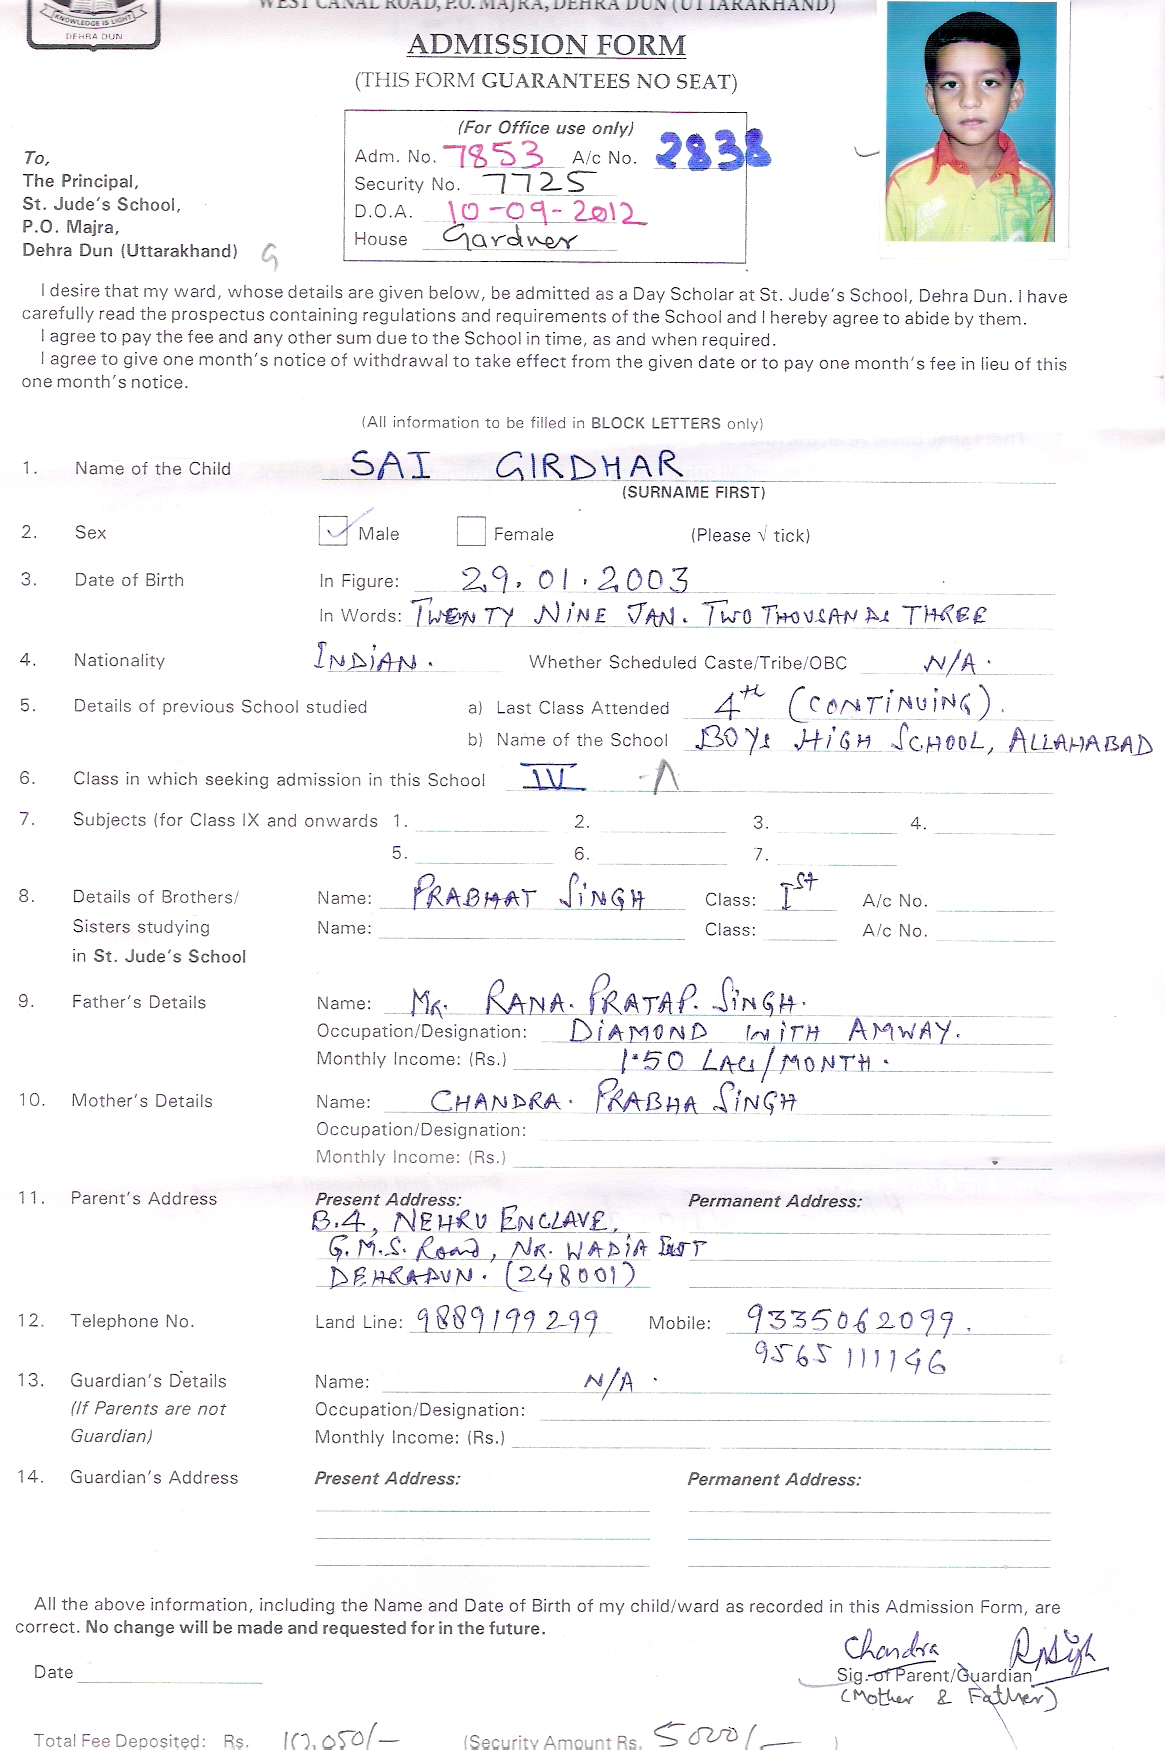 KNOWLEDGE IS LIGHT
DEHRA DUN
WEST CANAL ROAD, P.O. MAJRA, DEHRA DUN (UTTARAKHAND)
ADMISSION FORM
(THIS FORM GUARANTEES NO SEAT)
(For Office use only)
Adm. No. 7853 A/c No. 2838
Security No. 7725
D.O.A. 10-09-2012
House Gardner
To,
The Principal,
St. Jude's School,
P.O. Majra,
Dehra Dun (Uttarakhand) G
I desire that my ward, whose details are given below, be admitted as a Day Scholar at St. Jude's School, Dehra Dun. I have
carefully read the prospectus containing regulations and requirements of the School and I hereby agree to abide by them.
I agree to pay the fee and any other sum due to the School in time, as and when required.
I agree to give one month's notice of withdrawal to take effect from the given date or to pay one month's fee in lieu of this
one month's notice.
(All information to be filled in BLOCK LETTERS only)
1. Name of the Child SAI GIRDHAR
(SURNAME FIRST)
2. Sex Male Female (Please √ tick)
3. Date of Birth In Figure: 29.01.2003
In Words: TWENTY NINE JAN. TWO THOUSANDS THREE
4. Nationality INDIAN. Whether Scheduled Caste/Tribe/OBC N/A.
5. Details of previous School studied a) Last Class Attended 4th (CONTINUING).
b) Name of the School BOYS HIGH SCHOOL, ALLAHABAD
6. Class in which seeking admission in this School IV -A
7. Subjects (for Class IX and onwards 1. 2. 3. 4.
5. 6. 7.
8. Details of Brothers/ Name: PRABHAT SINGH Class: Ist A/c No.
Sisters studying Name: Class: A/c No.
in St. Jude's School
9. Father's Details Name: MR. RANA. PRATAP. SINGH.
Occupation/Designation: DIAMOND WITH AMWAY.
Monthly Income: (Rs.) 1.50 LACS/MONTH.
10. Mother's Details Name: CHANDRA. PRABHA SINGH
Occupation/Designation:
Monthly Income: (Rs.)
11. Parent's Address Present Address: Permanent Address:
B.4, NEHRU ENCLAVE,
G.M.S. Road, NR. WADIA INST
DEHRADUN. (248001)
12. Telephone No. Land Line: 9889199299 Mobile: 9335062099.
9565111146
13. Guardian's Details Name: N/A .
(If Parents are not Occupation/Designation:
Guardian) Monthly Income: (Rs.)
14. Guardian's Address Present Address: Permanent Address:
All the above information, including the Name and Date of Birth of my child/ward as recorded in this Admission Form, are
correct. No change will be made and requested for in the future.
Chandra RPSingh
Date Sig. of Parent/Guardian
(Mother & Father)
Total Fee Deposited: Rs. 10,050/- (Security Amount Rs. 5000/- )